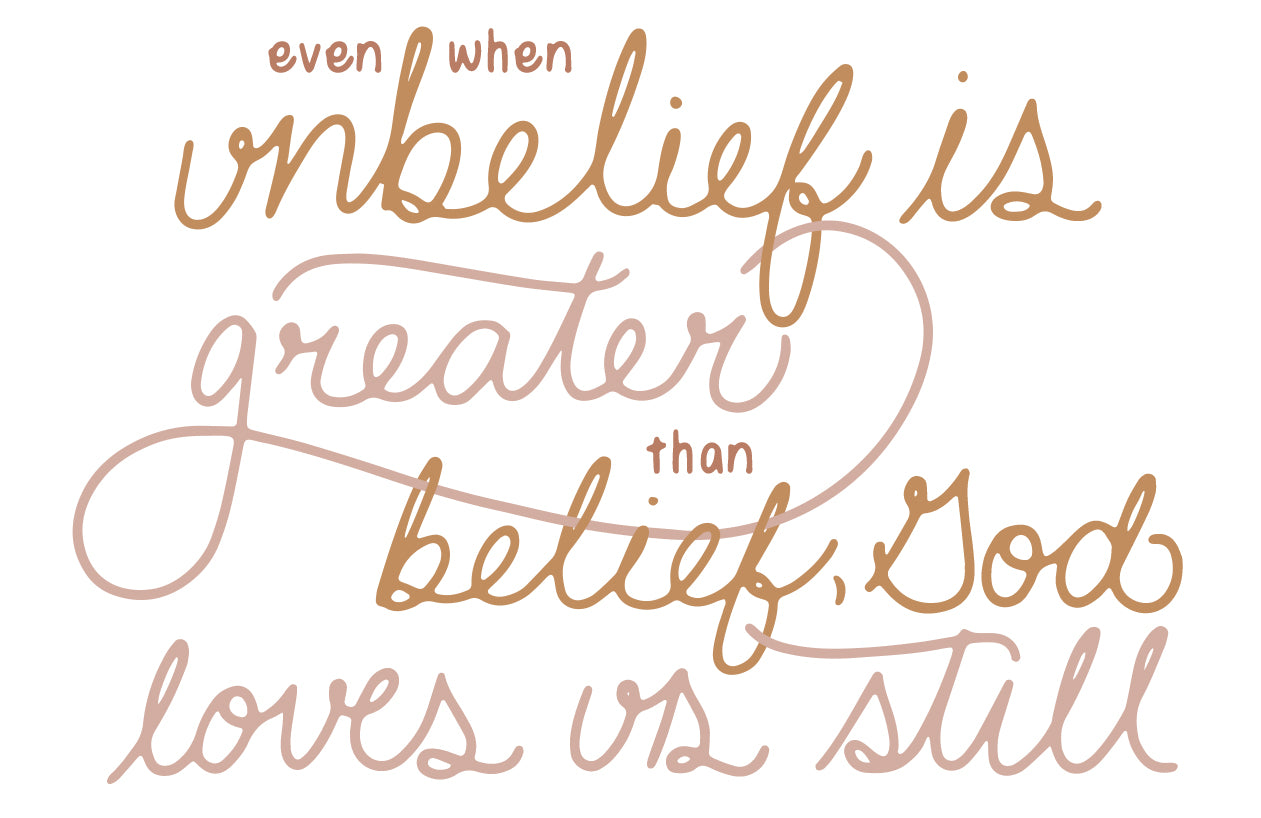 even when
unbelief is
greater
than
belief, God
loves us still